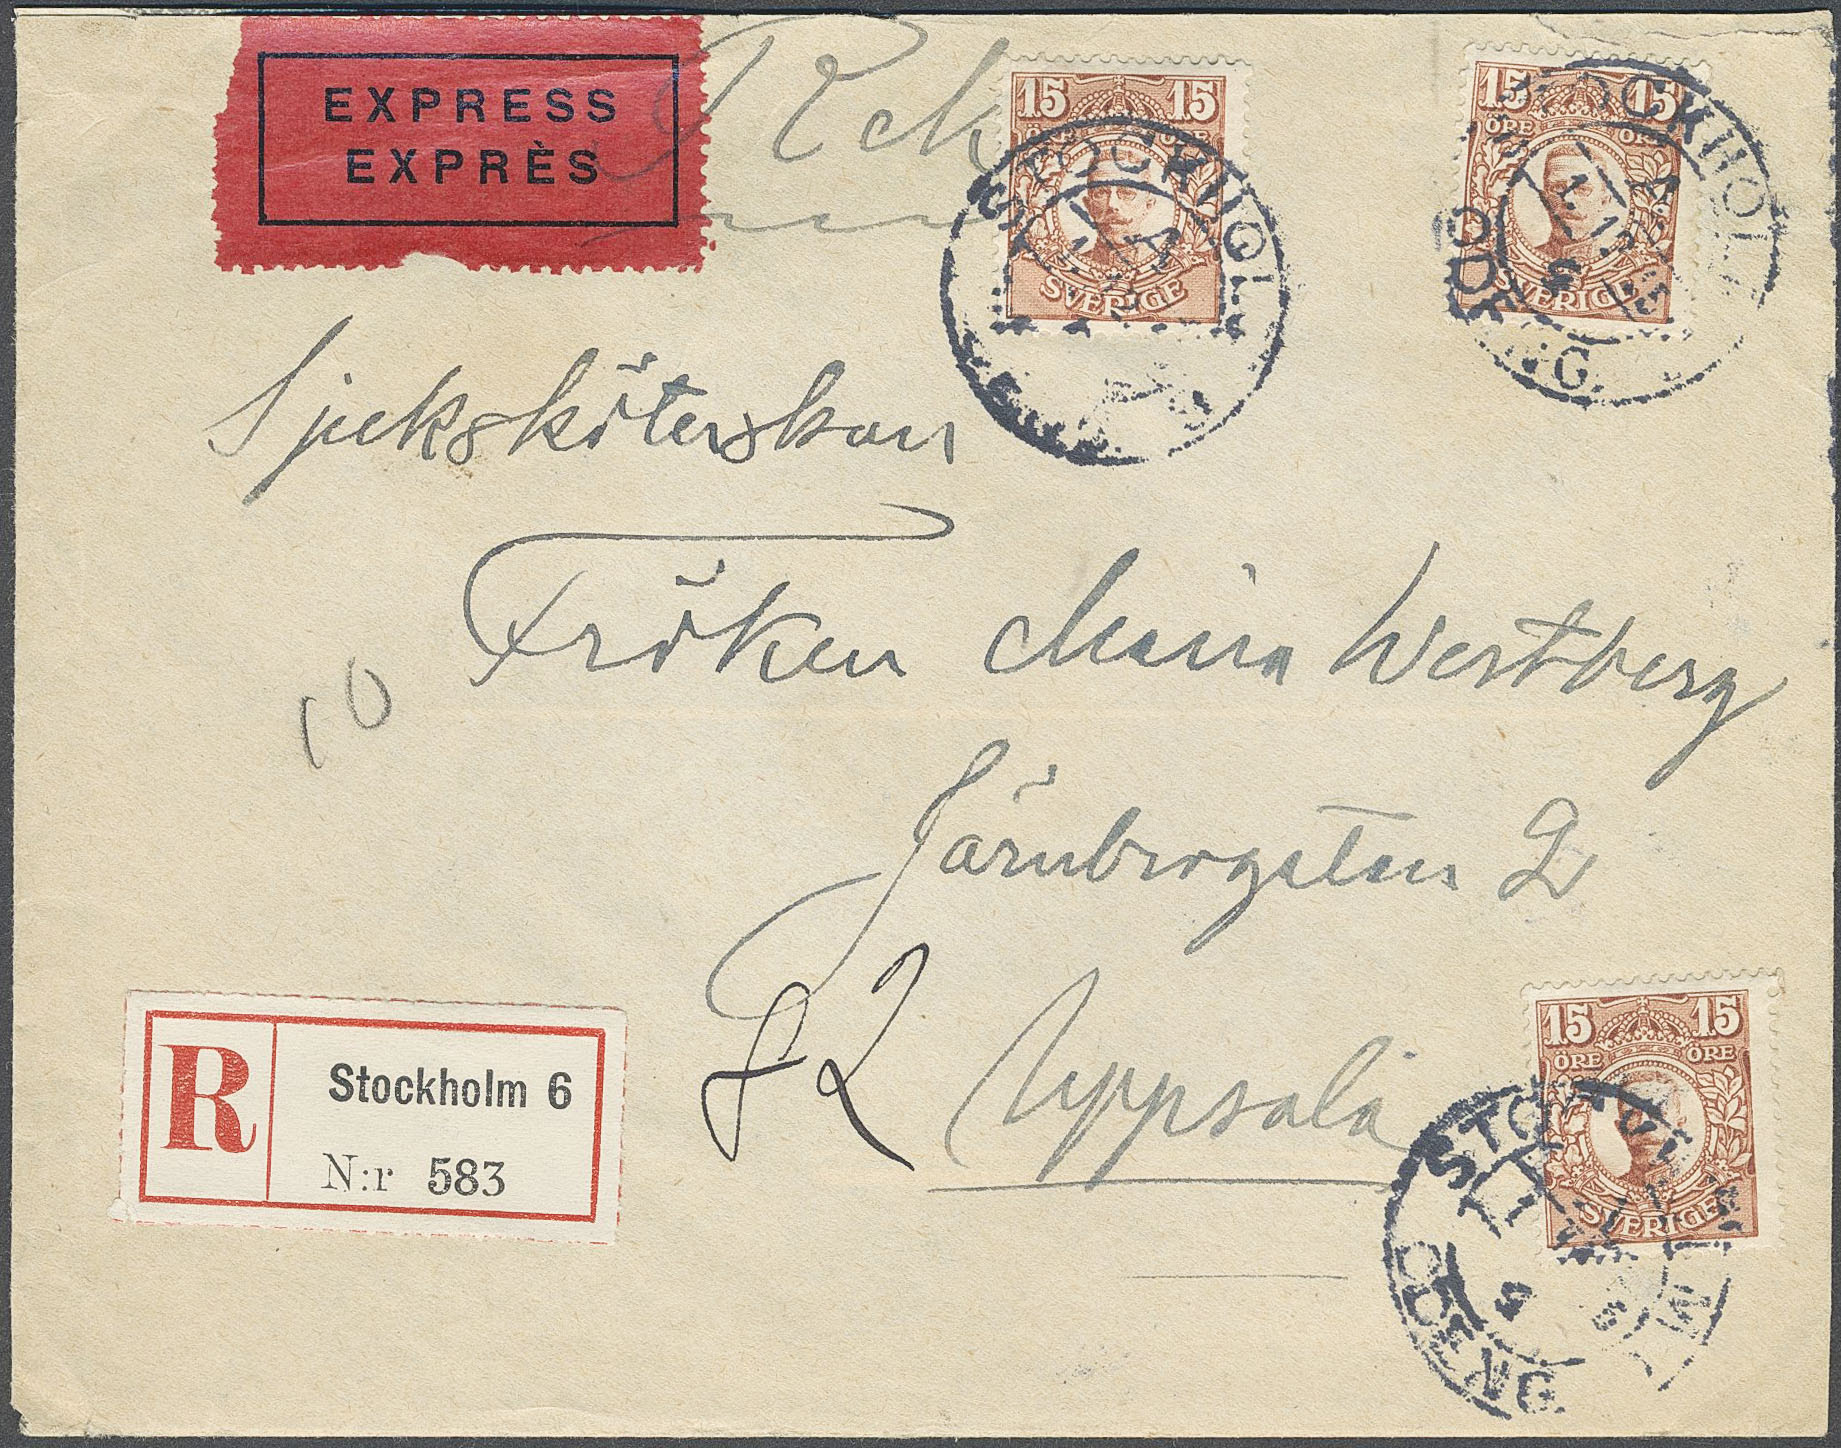 EXPRESS
EXPRÈS
Rek
15 15
ÖRE ÖRE
SVERIGE
STOCKHOLM
15 15
ÖRE ÖRE
SVERIGE
STOCKHOLM
ODENG.
Sjuksköterskan
Fröken Maria Westberg
10
Järnbrogatan 2
82 Uppsala
R Stockholm 6
N:r 583
15 15
ÖRE ÖRE
SVERIGE
STOCKHOLM
ODENG.